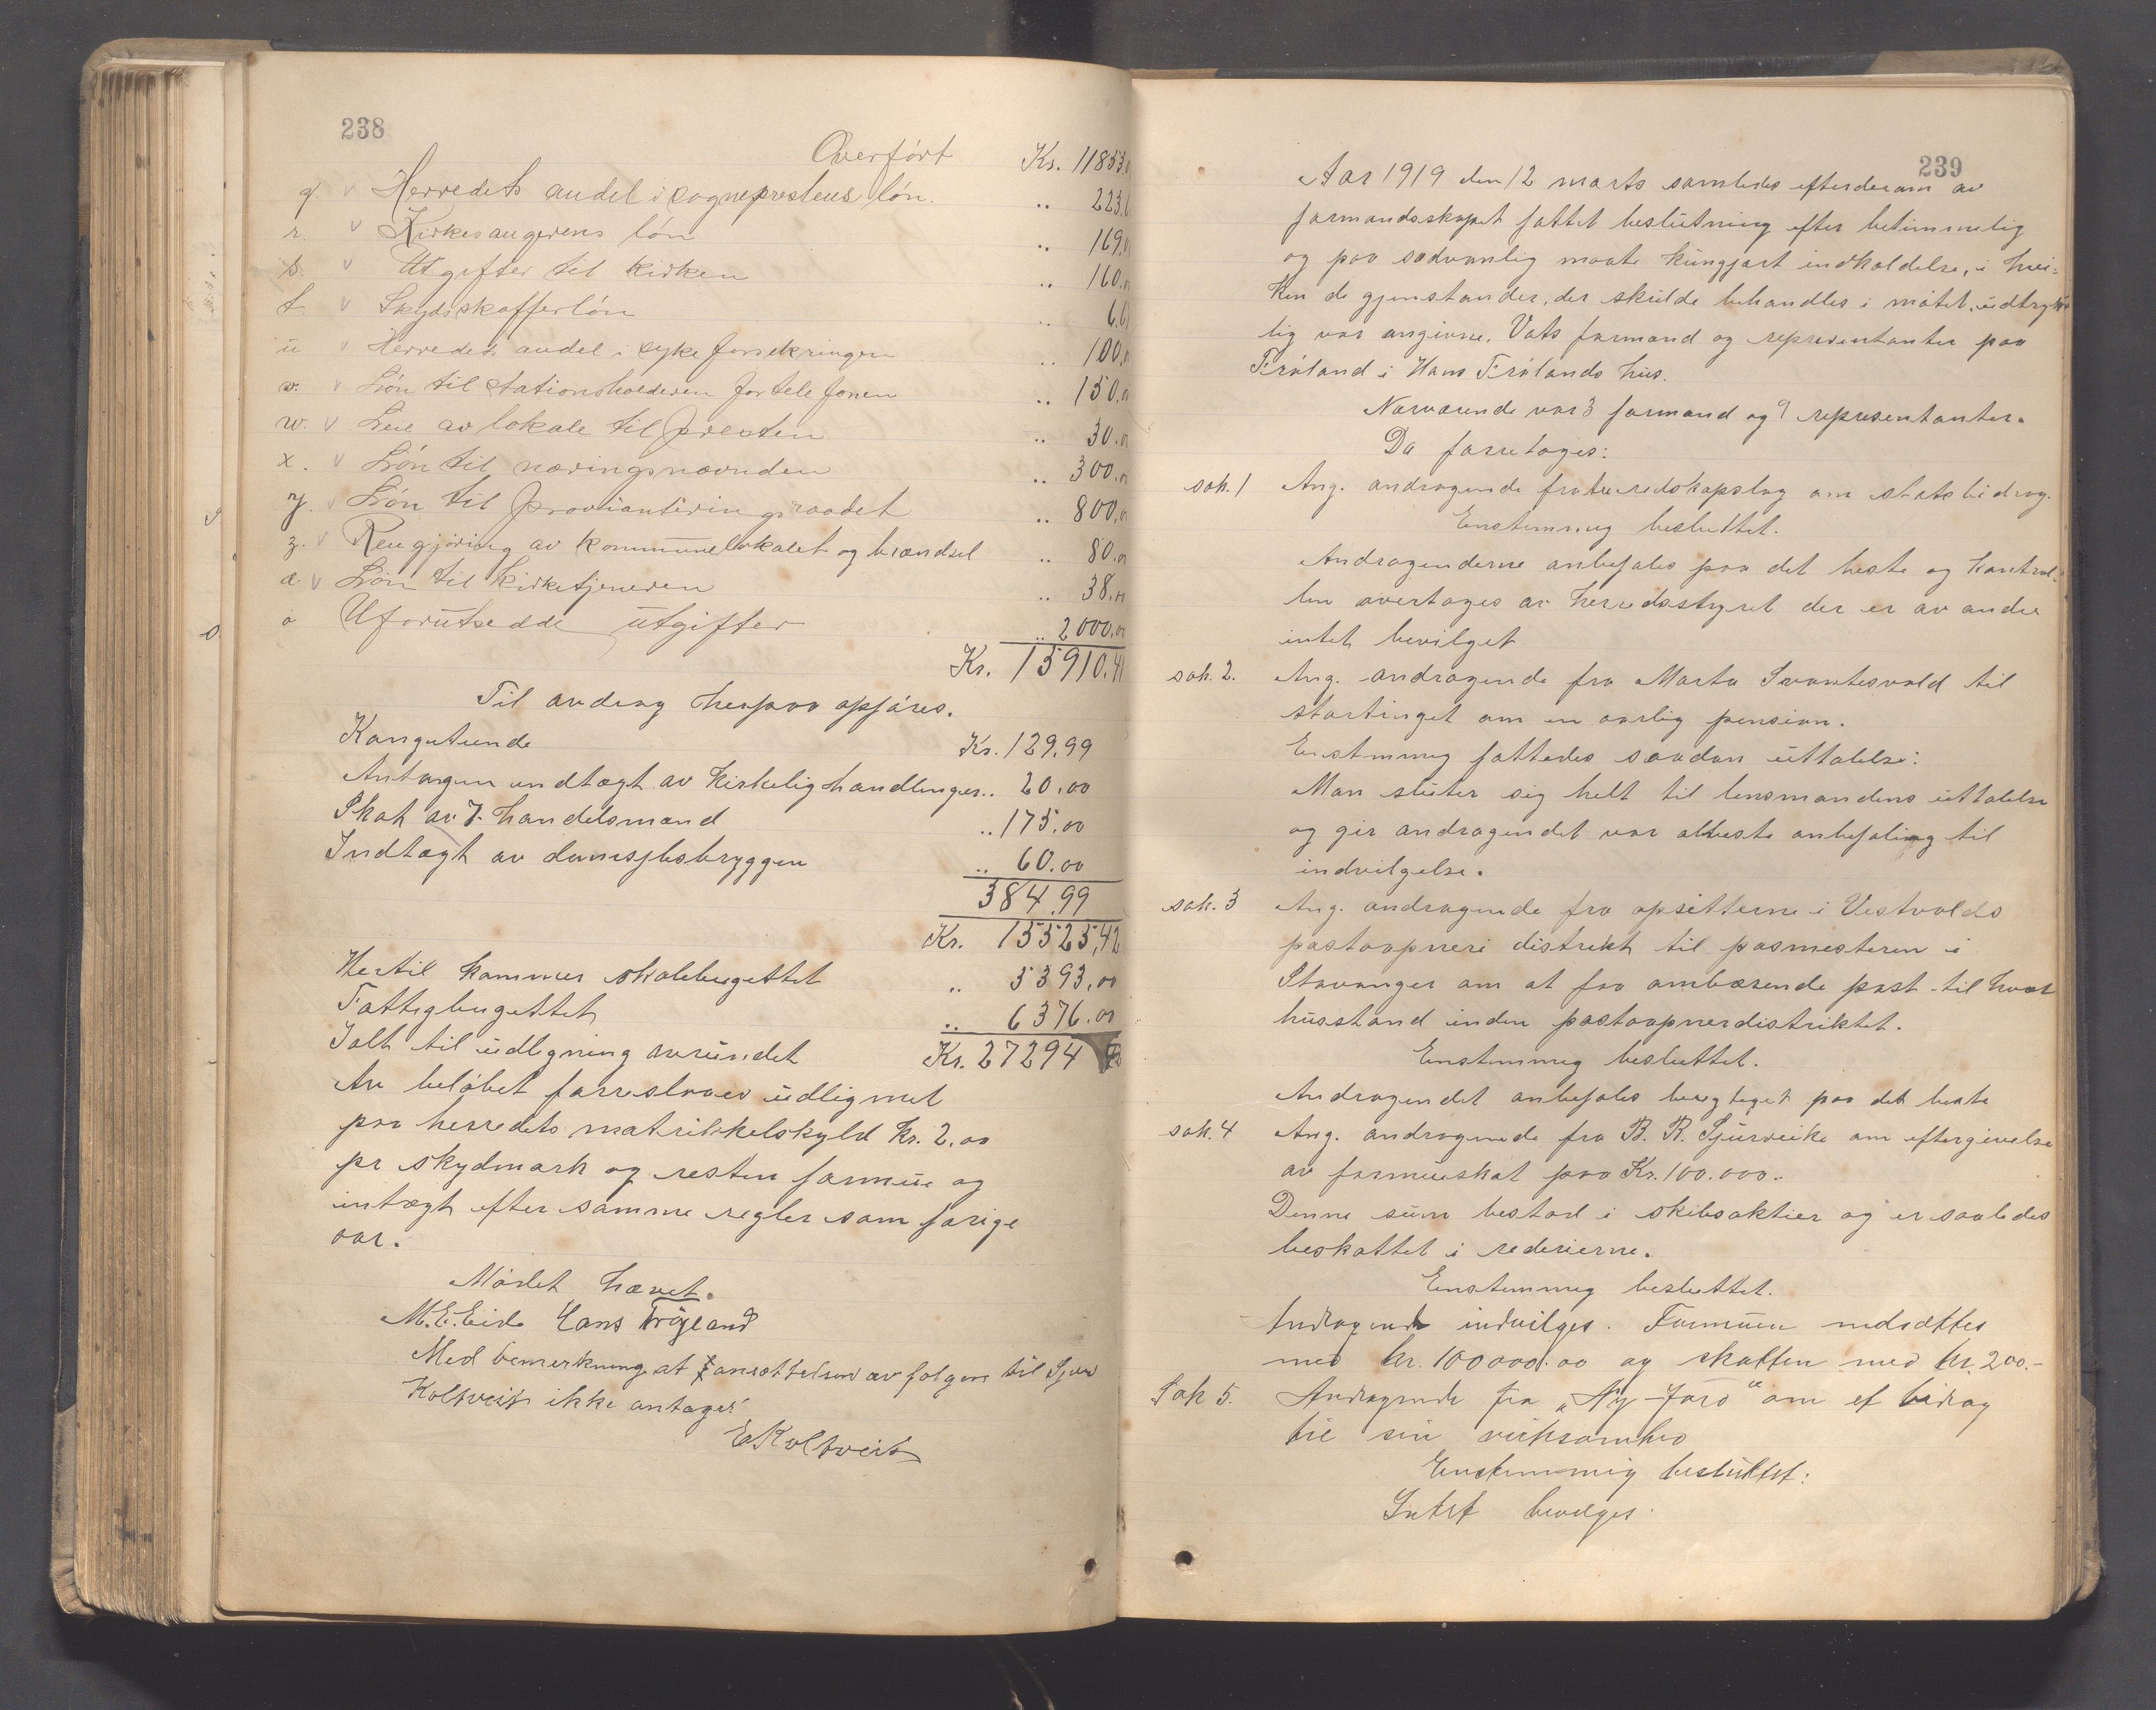 238
Overført Kr. 11853.
q. v Herredets andel i sogneprestens løn. .. 223.
r. v Kirkesangerens løn .. 169.
s. v Utgifter til kirken .. 160.
t v Skydsskafferløn .. 6.
u v Herredets andel i sykeforsikringen .. 100.
v. v Løn til stationsholderen for telefonen .. 150.
w. v Leie av lokale til presten .. 30.
x. v Løn til næringsnævnden .. 300.
y. v Løn til provianteringsraadet .. 800.
z. v Rengjøring av kommunelokalet og brændsel .. 80.
æ v Løn til kirketjeneren .. 38.
ø Uforutsedde utgifter .. 2000.00
Kr. 15910.41
Til avdrag herpaa opføres.
Kongetiende Kr. 129.99
Antagen indtægt av kirkelig handlinger .. 20.00
Skat av 7 handelsmænd .. 175.00
Indtægt av dampsbsbryggen .. 60.00
384.99
Kr. 15525,42
Hertil kommer skolebugettet .. 5393.00
Fattigbugettet .. 6376.00
Ialt til udligning avrundet Kr. 27294
Av beløbet foreslaaes udlignet
paa herredets matrikkelskyld kr. 2,00
pr skydmark og resten formue og
intægt efter samme regler som forige
aar.
Mødet hævet.
M. E. Eide Hans Frøland
Med bemerkning at ansættelsen av følgen til Sjur
Koltveit ikke antages!
E Koltveit
239
Aar 1919 den 12 marts samledes efterderom av
formandsskapet fattet beslutning efter betimmelig
og paa sædvanlig maate kungjort indkaldelse, i hvi-
ken de gjenstander, der skulde behandles i møtet, udtryk
lig var angivne. Vats formand og representanter paa
Frøland i Hans Frølands hus.
Nærværende var 3 formænd og 9 representanter.
Da foretages:
sak. 1 Ang. andragende fra to redskapslag om statsbidrag.
Enstemmig besluttet.
Andragenderne anbefales paa det beste og kontrol-
len overtages av herredsstyret der er av andre
intet bevilget
sak. 2. Ang. andragende fra Marta Svantesvold til
stortinget om en aarlig pension.
Enstemmig fattedes saadan uttalelse:
Man slutter sig helt til lensmandens uttalelse
og gir andragendet vor allbeste anbefaling til
indvilgelse.
sak. 3 Ang. andragende fra opsitterne i Vestvolds
postaapneri distrikt til posmesteren i
Stavanger om at faa ombærende post til hver
husstand inden postaapnerdistriktet.
Enstemmig besluttet.
Andragendet anbefales paa det beste
sak. 4 Ang. andragende fra B. R. Sjurveike om eftergivelse
av formueskat paa Kr. 100.000..
Denne sum bestod i skibsaktier og er saaledes
beskattet i rederierne.
Enstemmig besluttet.
Andragende indvilges. Formuen nedsættes
med kr. 100000.00 og skatten med kr. 200.-
Sak 5. Andragende fra "Ny-Jord" om et bidrag
til sin virksomhed
Enstemmig besluttet:
Intet bevilges.